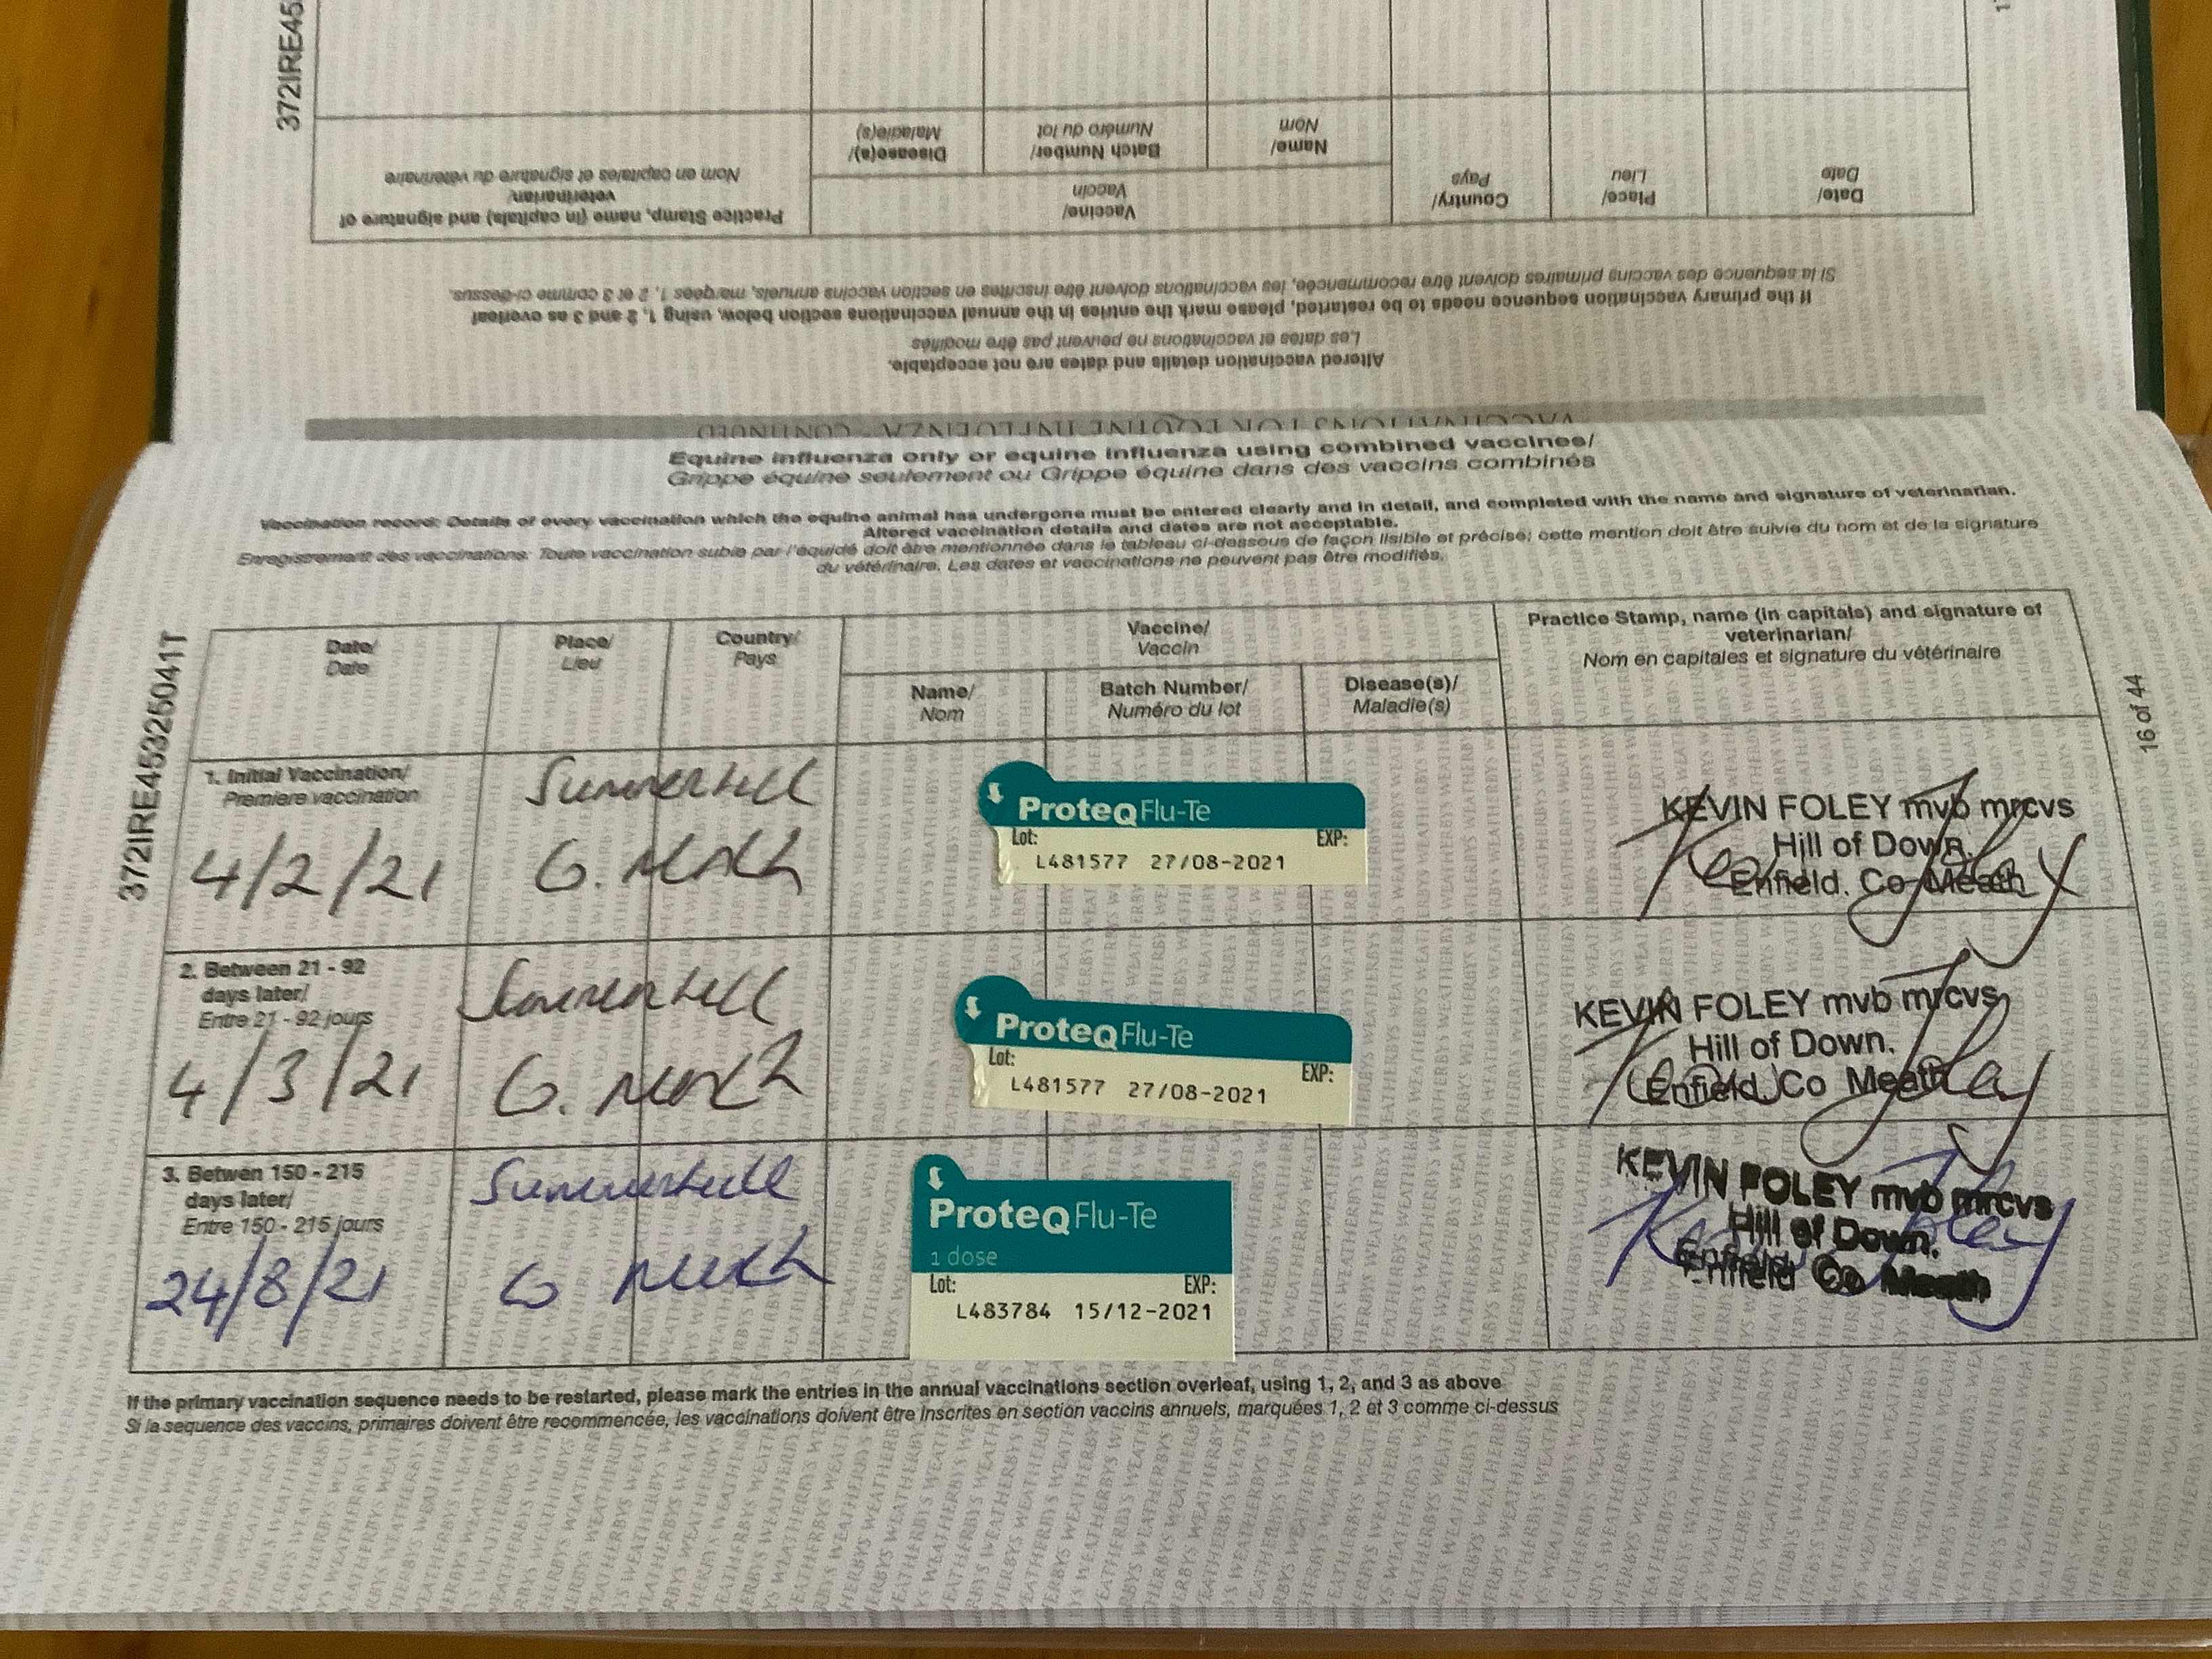 372IRE45
Practice Stamp, name (in capitals) and signature of
veterinarian/
Nom en capitales et signature du vétérinaire
Vaccine/
Vaccin
Disease(s)/
Maladie(s)
Batch Number/
Numéro du lot
Name/
Nom
Country/
Pays
Place/
Lieu
Date/
Date
If the primary vaccination sequence needs to be restarted, please mark the entries in the annual vaccinations section below, using 1, 2 and 3 as overleaf
Si la sequence des vaccins primaires doivent être recommencée, les vaccinations doivent être inscrites en section vaccins annuels, marqées 1, 2 et 3 comme ci-dessus.
Altered vaccination details and dates are not acceptable.
Les dates et vaccinations ne peuvent pas être modifiés
VACCINATIONS FOR EQUINE INFLUENZA - CONTINUED
Equine influenza only or equine influenza using combined vaccines/
Grippe équine seulement ou Grippe équine dans des vaccins combinés
Vaccination record: Details of every vaccination which the equine animal has undergone must be entered clearly and in detail, and completed with the name and signature of veterinarian.
Altered vaccination details and dates are not acceptable.
Enregistrement des vaccinations: Toute vaccination subie par l'équidé doit être mentionnée dans le tableau ci-dessous de façon lisible et précise; cette mention doit être suivie du nom et de la signature
du vétérinaire. Les dates et vaccinations ne peuvent pas être modifiés.
372IRE45325041T
16 of 44
Date/
Date
Place/
Lieu
Country/
Pays
Vaccine/
Vaccin
Name/
Nom
Batch Number/
Numéro du lot
Disease(s)/
Maladie(s)
Practice Stamp, name (in capitals) and signature of
veterinarian/
Nom en capitales et signature du vétérinaire
1. Initial Vaccination/
Premiere vaccination
4/2/21
Summerhill
Co. Meath
ProteqFlu-Te
Lot: EXP:
L481577 27/08-2021
KEVIN FOLEY mvb mrcvs
Hill of Down.
Enfield. Co Meath
Kevin Foley
2. Between 21 - 92
days later/
Entre 21 - 92 jours
4/3/21
Summerhill
Co. Meath
ProteqFlu-Te
Lot: EXP:
L481577 27/08-2021
KEVIN FOLEY mvb mrcvs
Hill of Down.
Enfield. Co Meath
Kevin Foley
3. Betwen 150 - 215
days later/
Entre 150 - 215 jours
24/8/21
Summerhill
Co Meath
ProteqFlu-Te
1 dose
Lot: EXP:
L483784 15/12-2021
KEVIN FOLEY mvb mrcvs
Hill of Down.
Enfield Co Meath
Kevin Foley
If the primary vaccination sequence needs to be restarted, please mark the entries in the annual vaccinations section overleaf, using 1, 2, and 3 as above
Si la sequence des vaccins, primaires doivent être recommencée, les vaccinations doivent être inscrites en section vaccins annuels, marquées 1, 2 et 3 comme ci-dessus